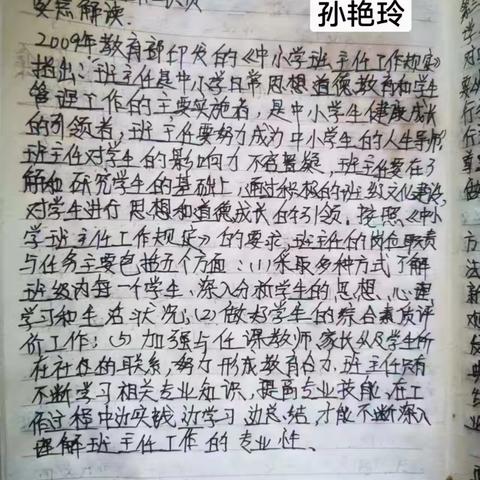 孙艳玲
要点解读.
2009年教育部印发的《中小学班主任工作规定》
指出:班主任是中小学日常思想道德教育和学生
管理工作的主要实施者,是中小学生健康成长
的引领者,班主任要努力成为中小学生的人生导师
班主任对学生的影响力不容置疑,班主任要在了
解和研究学生的基础上,通过积极的班级文化建设,
对学生进行思想和道德成长的引领。按照《中小
学班主任工作规定》的要求,班主任的岗位职责
与任务主要包括五个方面:(1)采取多种方式了解
班级内每一个学生、深入分析学生的思想、心理、
学习和生活状况;(2)做好学生的综合素质评
价工作;(5)加强与任课教师、家长以及学生所
在社区的联系,努力形成教育合力,班主任只有
不断学习相关专业知识,提高专业技能,在工
作过程中边实践边学习边总结,才能不断深入
理解班主任工作的专业性、